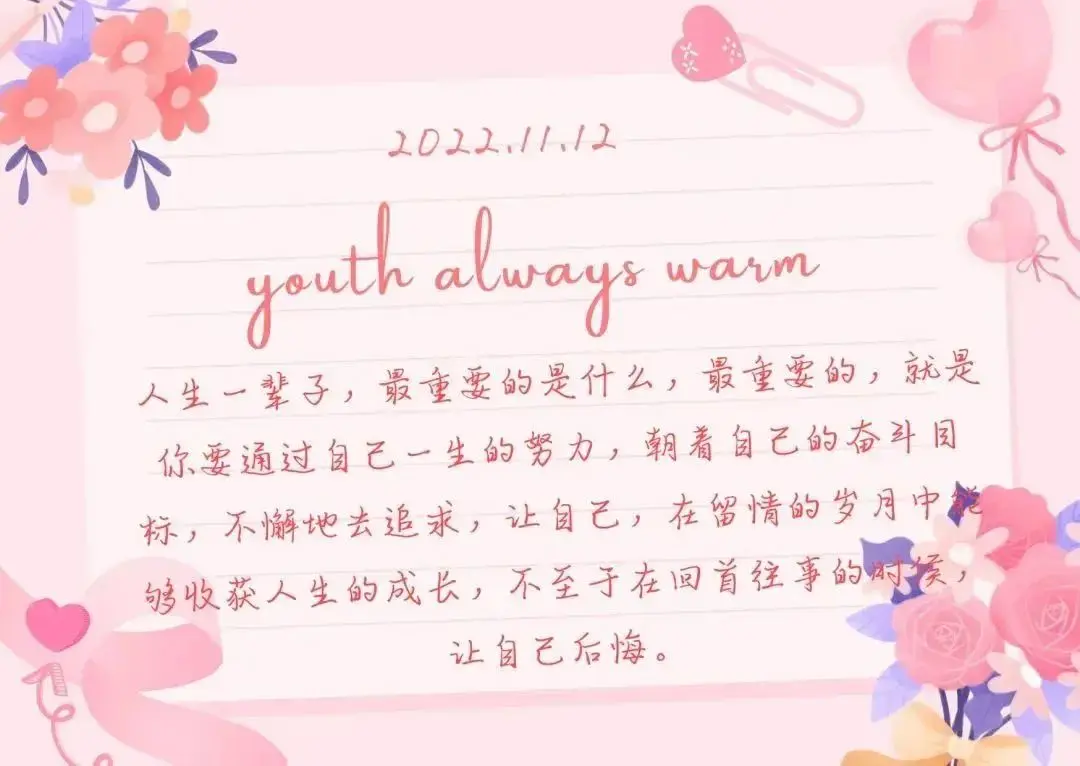 2022.11.12
youth always warm
人生一辈子，最重要的是什么，最重要的，就是
你要通过自己一生的努力，朝着自己的奋斗目
标，不懈地去追求，让自己，在留情的岁月中能
够收获人生的成长，不至于在回首往事的时候，
让自己后悔。